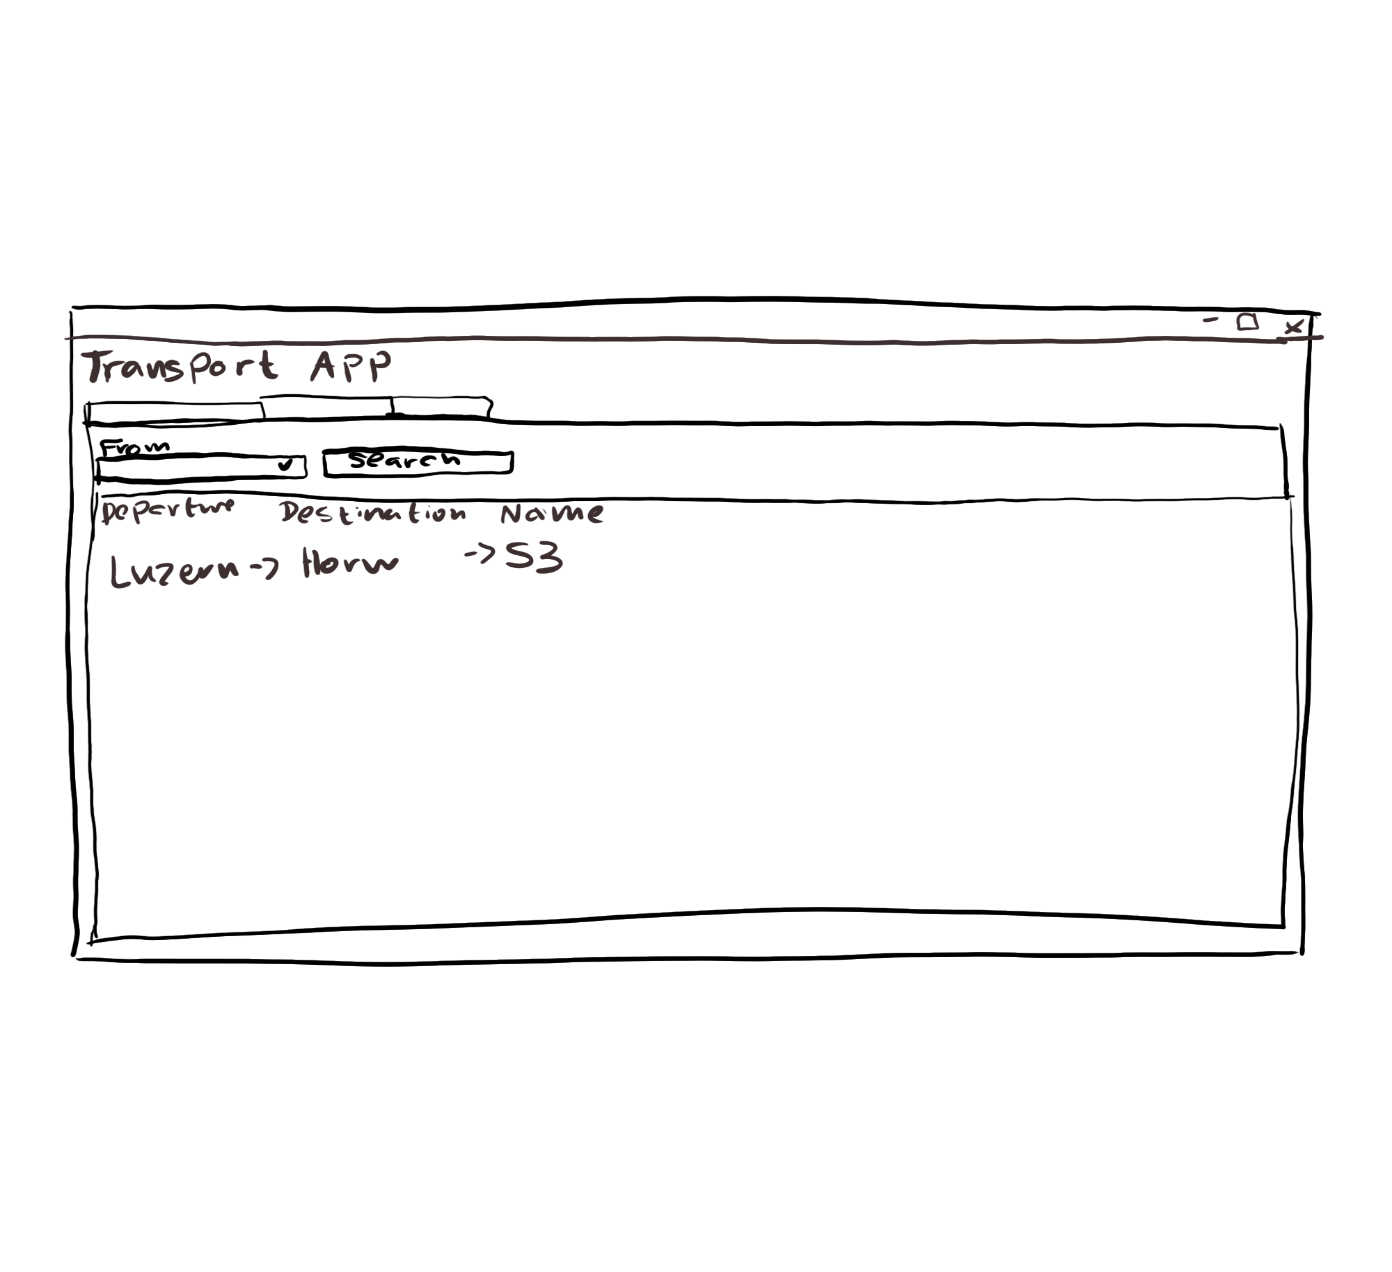 Transport App
From
Search
Departure Destination Name
Luzern -> Horw -> S3